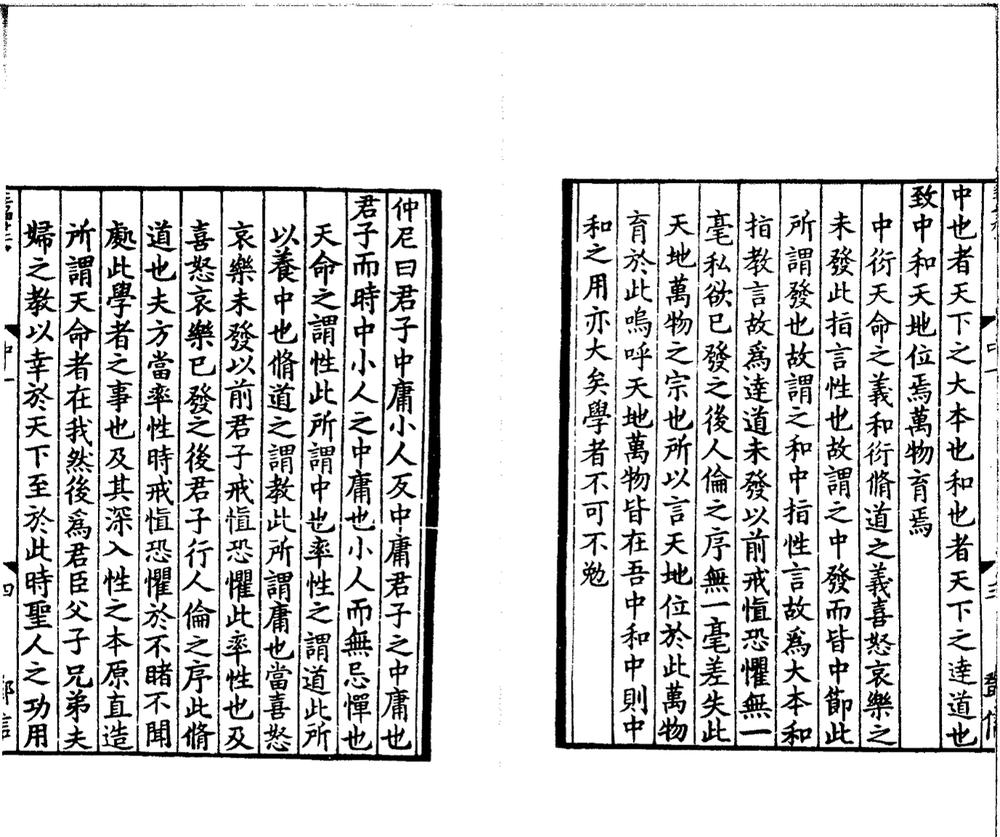 中也者天下之大本也和也者天下之達道也
致中和天地位焉萬物育焉
中衍天命之義和衍脩道之義喜怒哀樂之
未發此指言性也故謂之中發而皆中節此
所謂發也故謂之和中指性言故爲大本和
指教言故爲達道未發以前戒愼恐懼無一
毫私欲已發之後人倫之序無一毫差失此
天地萬物之宗也所以言天地位於此萬物
育於此嗚呼天地萬物皆在吾中和中則中
和之用亦大矣學者不可不勉
仲尼曰君子中庸小人反中庸君子之中庸也
君子而時中小人之中庸也小人而無忌憚也
天命之謂性此所謂中也率性之謂道此所
以養中也脩道之謂教此所謂庸也當喜怒
哀樂未發以前君子戒愼恐懼此率性也及
喜怒哀樂已發之後君子行人倫之序此脩
道也夫方當率性時戒愼恐懼於不睹不聞
處此學者之事也及其深入性之本原直造
所謂天命者在我然後爲君臣父子兄弟夫
婦之教以幸於天下至於此時聖人之功用
中一
四